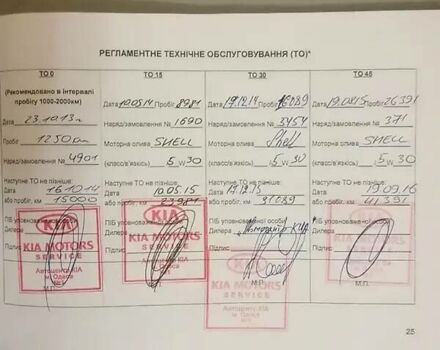 РЕГЛАМЕНТНЕ ТЕХНІЧНЕ ОБСЛУГОВУВАННЯ (ТО)*
ТО 0
(Рекомендовано в інтервалі
пробігу 1000-2000км)
Дата 23.10.13г.
Пробіг 1250км
Наряд/замовлення № 4901
Наступне ТО не пізніше:
Дата 16.10.14
або пробіг, км 15000
ПІБ уповноваженої особи
Дилера
Підпис
KIA
KIA MOTORS
SERVICE
Автоцентр КІА
м. Одеса
№1
ТО 15
Дата 10.05.14 Пробіг 8981
Наряд/замовлення № 1690
Моторна олива SHELL
(клас/в'язкість) 5 W 30
Наступне ТО не пізніше:
Дата 10.05.15
або пробіг, км 23981
ПІБ уповноваженої особи
Дилера
Підпис
KIA
KIA MOTORS
SERVICE
Автоцентр КІА
м. Одеса
№1
М.П.
ТО 30
Дата 17.12.14 Пробіг 16089
Наряд/замовлення № 3454
Моторна олива Shell
(клас/в'язкість) 5 W 30
Наступне ТО не пізніше:
Дата 17.12.15
або пробіг, км 31089
ПІБ уповноваженої особи
Дилера
Підпис
М.П.
KIA MOTORS
SERVICE
Автоцентр КІА
м. Одеса
№1
ТО 45
Дата 19.08.15 Пробіг 26391
Наряд/замовлення № 371
Моторна олива SHELL
(клас/в'язкість) 5 W 30
Наступне ТО не пізніше:
Дата 19.09.16
або пробіг, км 41391
ПІБ уповноваженої особи
Дилера
Підпис
KIA
KIA MOTORS
SERVICE
Автоцентр КІА
м. Одеса
№1
М.П.
25